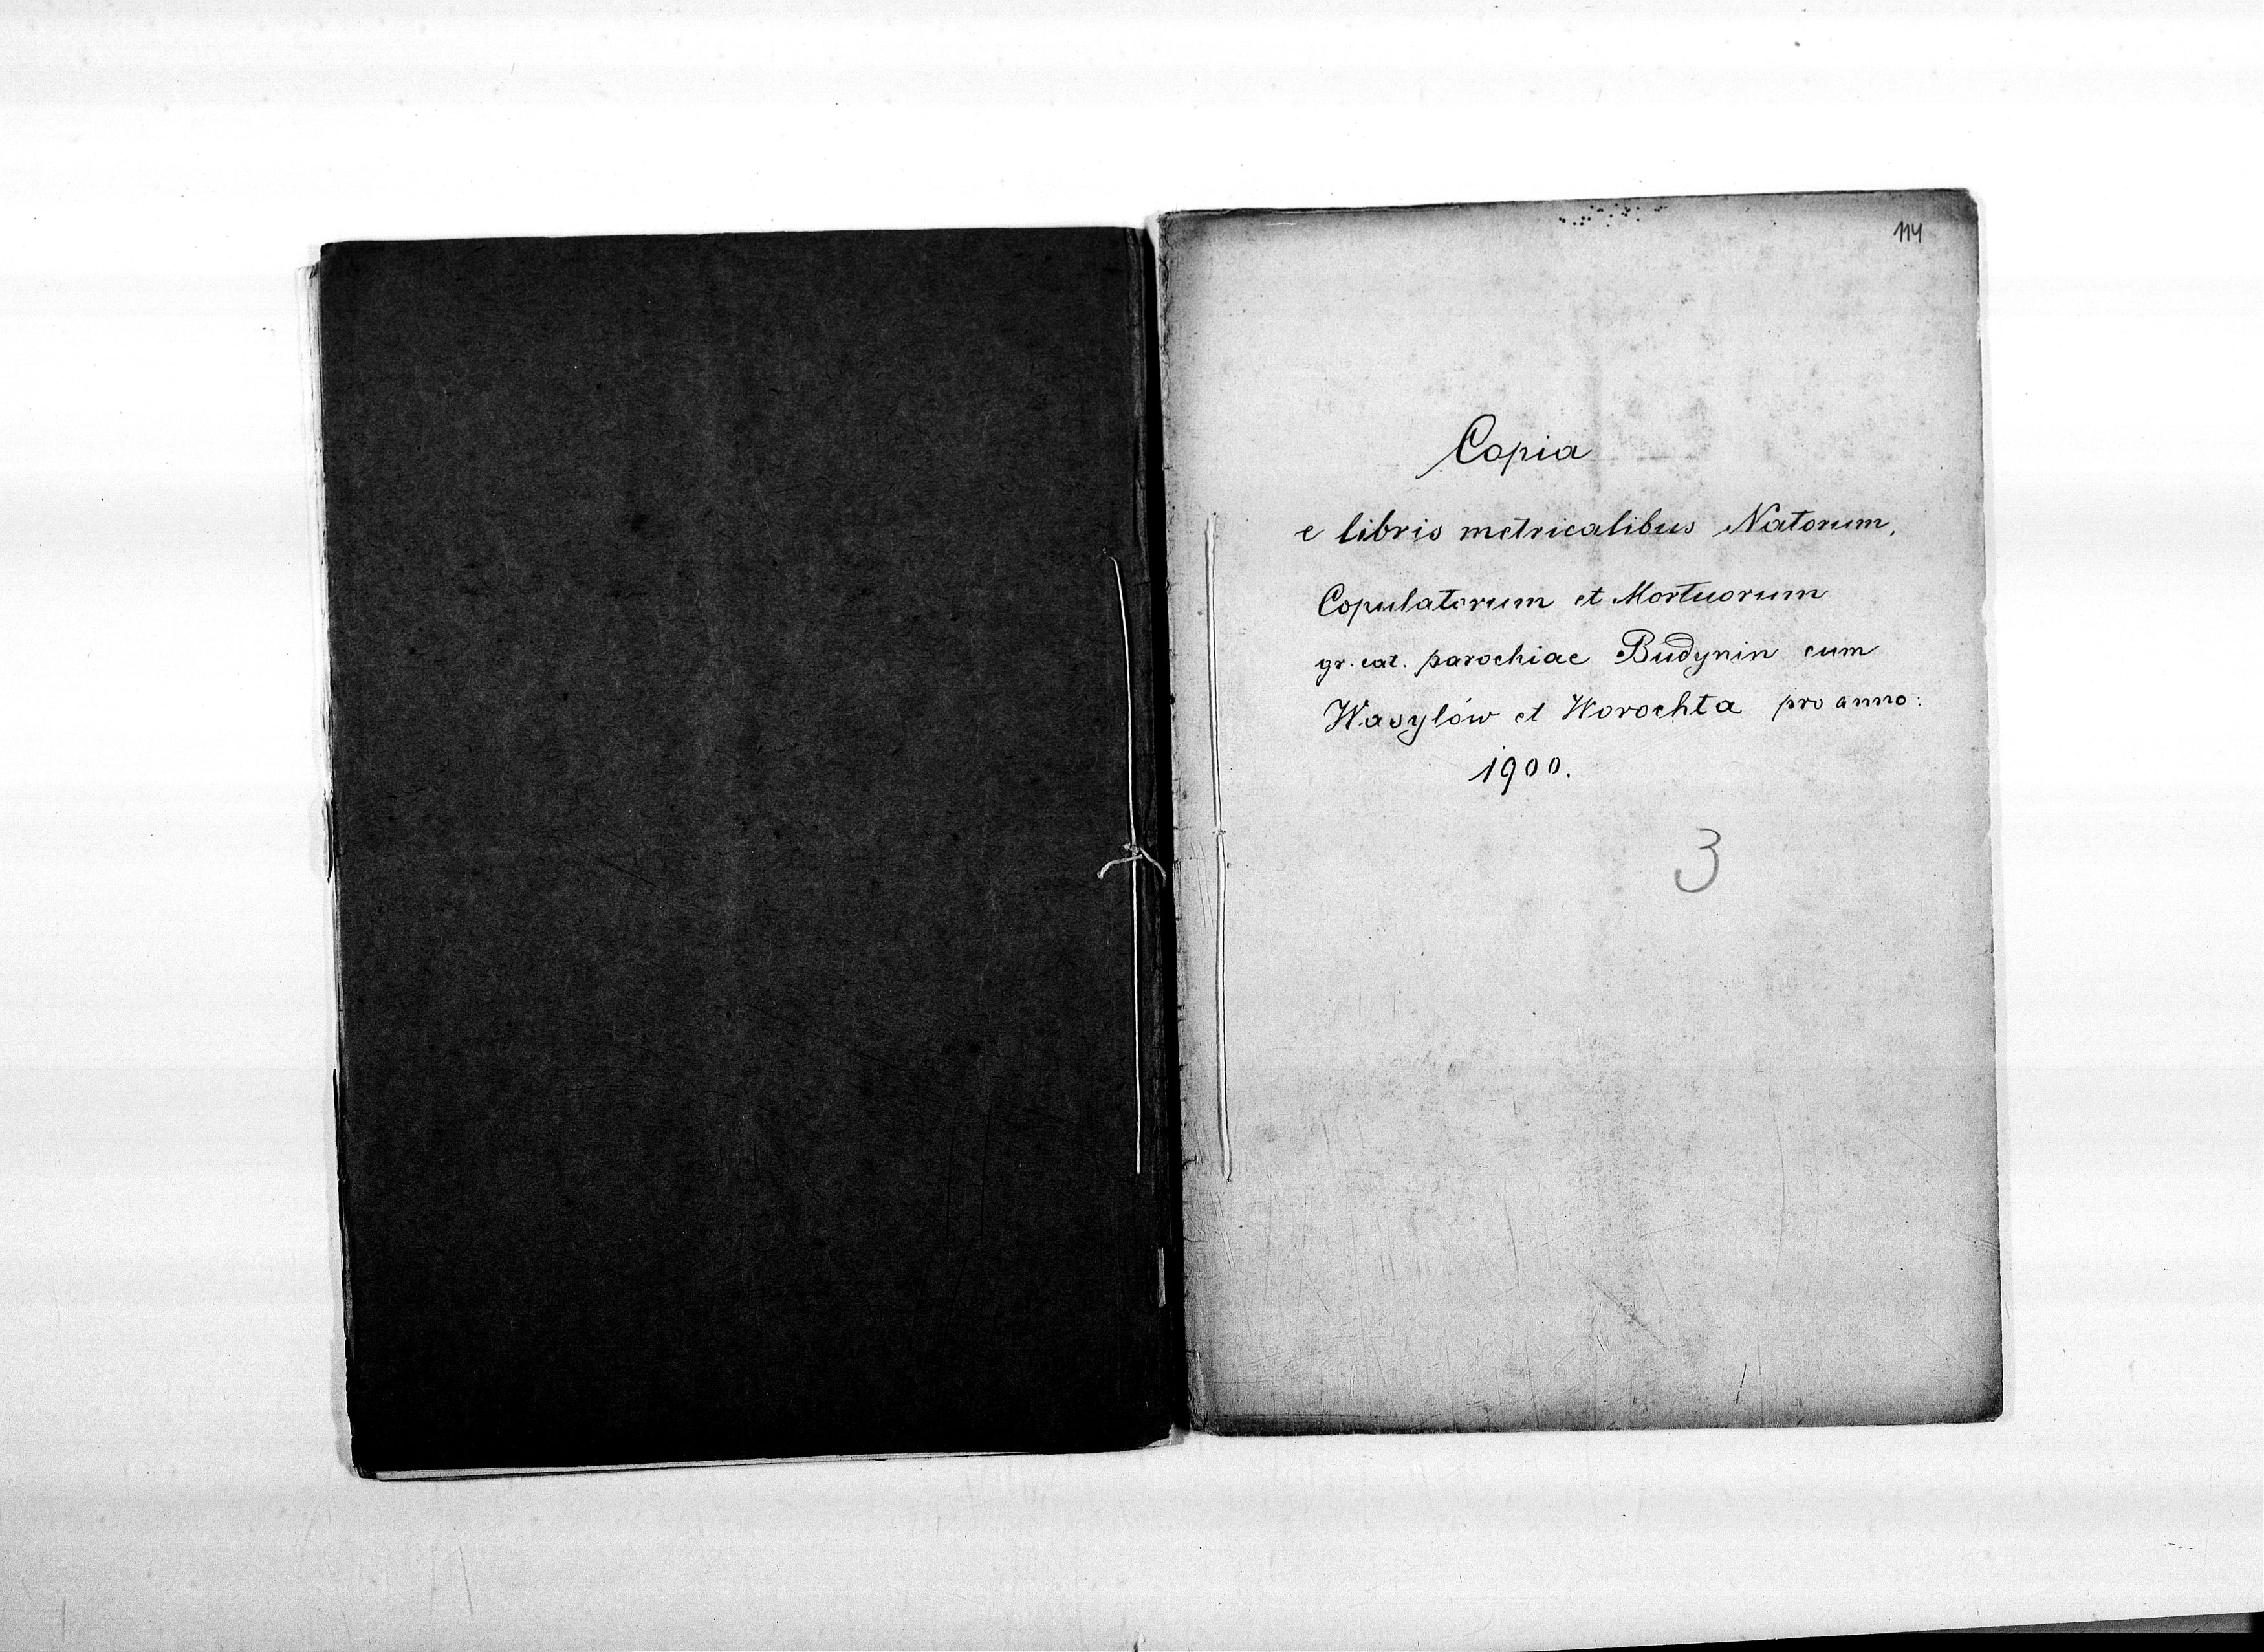 114
Copia
e libris metricalibus Natorum,
Copulatorum et Mortuorum
gr. cat. parochiae Budynin cum
Wasylów et Worochta pro anno:
1900.
3